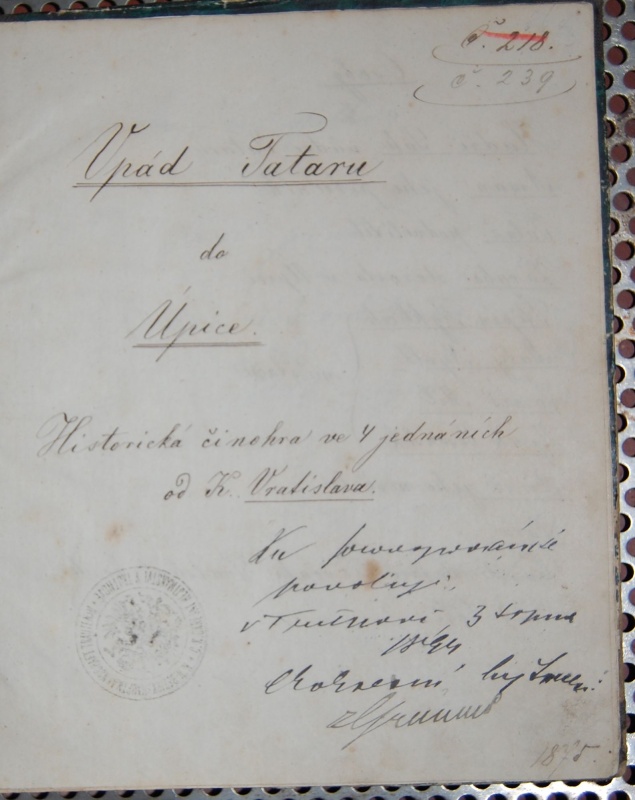 č. 218.
č. 239
Vpád Tataru
do
Úpice.
Historická činohra ve 4 jednáních
od K. Vratislava.
Ku
povoluji.
v Trutnově, 3 srpna
Okresní hejtman:
1875.